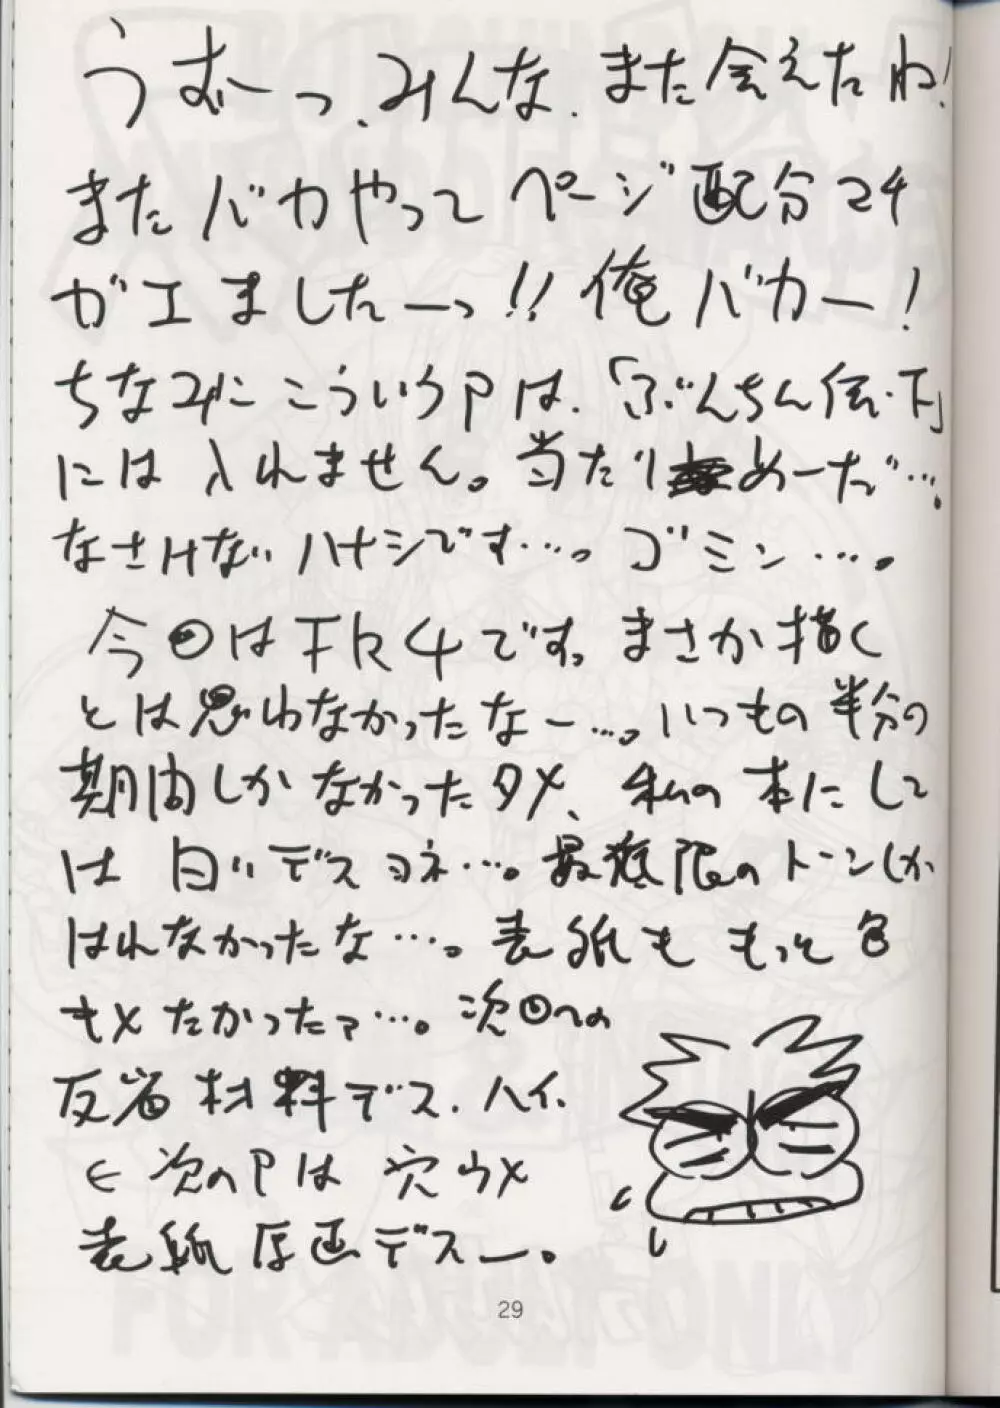 うむーっ、みんな、また会えたね!
またバカやって ページ配分マチ
ガエましたーっ!!俺バカー!
ちなみにこういうPは、「ぶんちん伝・下」
には入れません。当たりめーだ…。
なさけないハナシです…。ゴミン…。
今回はFR4です。まさか描く
とは思わなかったなー…。いつもの半分の
期間しかなかったタメ、私の本にして
は白いデスヨネ…。最底限のトーンしか
はれなかったな…。表紙ももっと色
キメたかったァ…。次回への
反省材料デス、ハイ、
← 次のPは穴ウメ
表紙原画デスー。
29